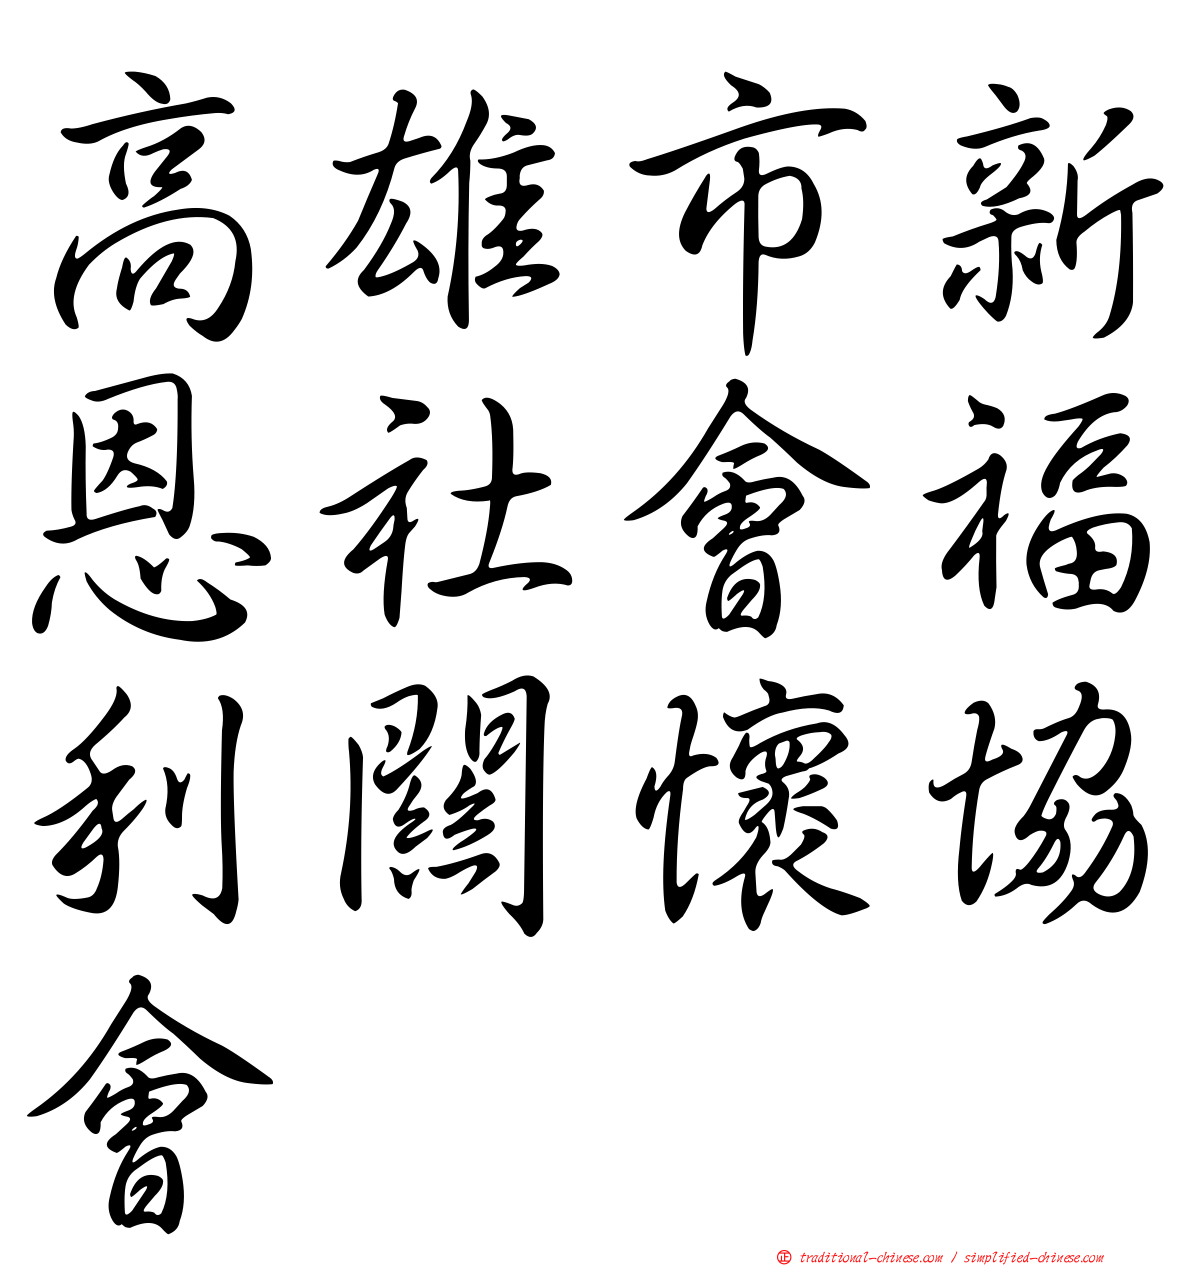 高雄市新
恩社會福
利關懷協
會
正 traditional-chinese.com / simplified-chinese.com